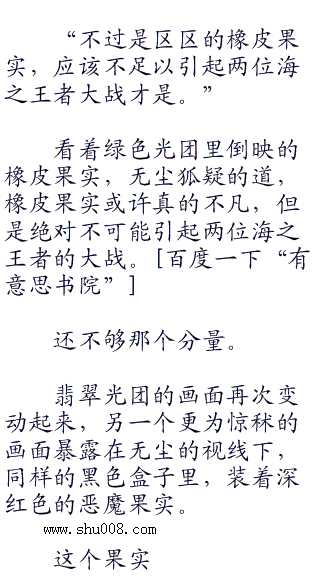 “不过是区区的橡皮果
实，应该不足以引起两位海
之王者大战才是。”
看着绿色光团里倒映的
橡皮果实，无尘狐疑的道，
橡皮果实或许真的不凡，但
是绝对不可能引起两位海之
王者的大战。[百度一下“有
意思书院”]
还不够那个分量。
翡翠光团的画面再次变
动起来，另一个更为惊秫的
画面暴露在无尘的视线下，
同样的黑色盒子里，装着深
红色的恶魔果实。
www.shu008.com
这个果实